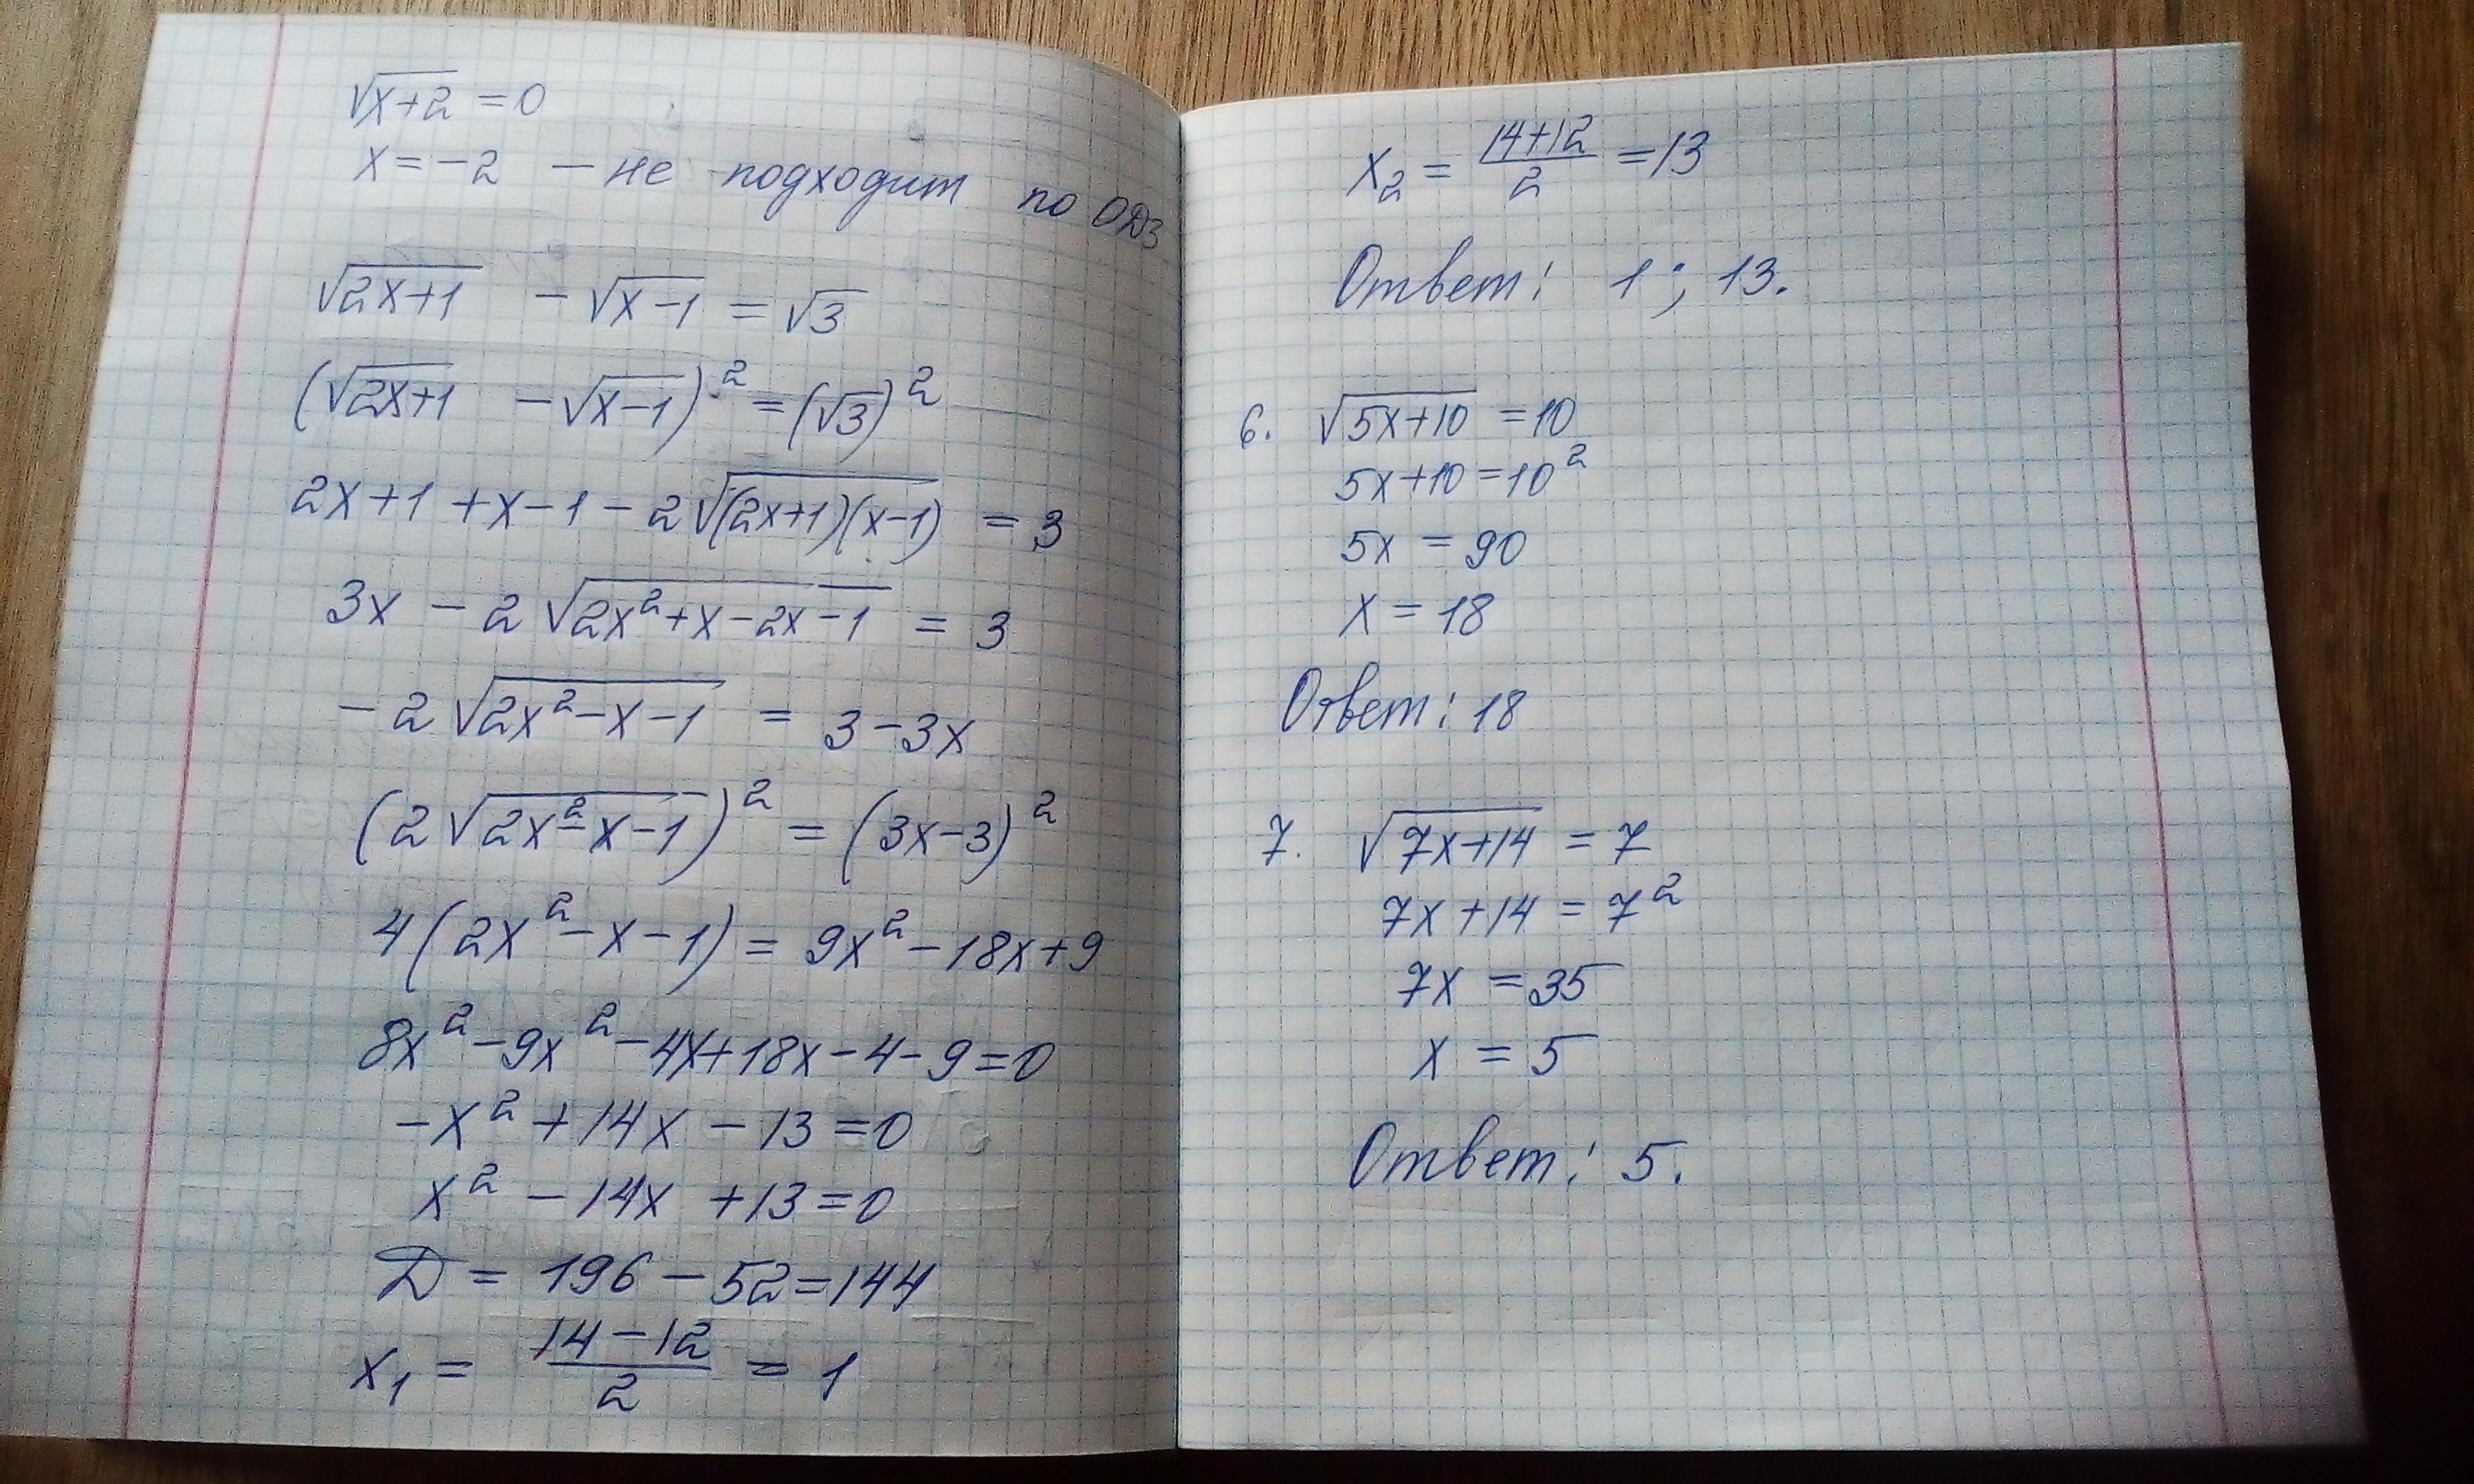 √x+2 = 0
x = -2 - не подходит по ОДЗ
√2x+1 - √x-1 = √3
(√2x+1 - √x-1)² = (√3)²
2x+1 + x-1 - 2√(2x+1)(x-1) = 3
3x - 2√2x²+x-2x-1 = 3
-2√2x²-x-1 = 3-3x
(2√2x²-x-1)² = (3x-3)²
4(2x²-x-1) = 9x²-18x+9
8x²-9x²-4x+18x-4-9=0
-x²+14x-13=0
x²-14x+13=0
D = 196-52=144
x₁ = 14-12/2 = 1
x₂ = 14+12/2 = 13
Ответ: 1; 13.
6. √5x+10 = 10
5x+10=10²
5x = 90
x = 18
Ответ: 18
7. √7x+14 = 7
7x+14 = 7²
7x = 35
x = 5
Ответ: 5.